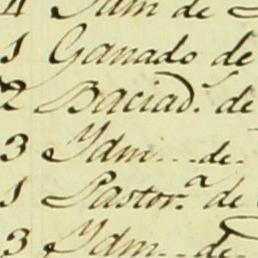 4 Idm de
1 Ganado de
2 Baciad.ª de
3 Ydm... de.
1 Pastor.ª de
3 Ydm.. de.